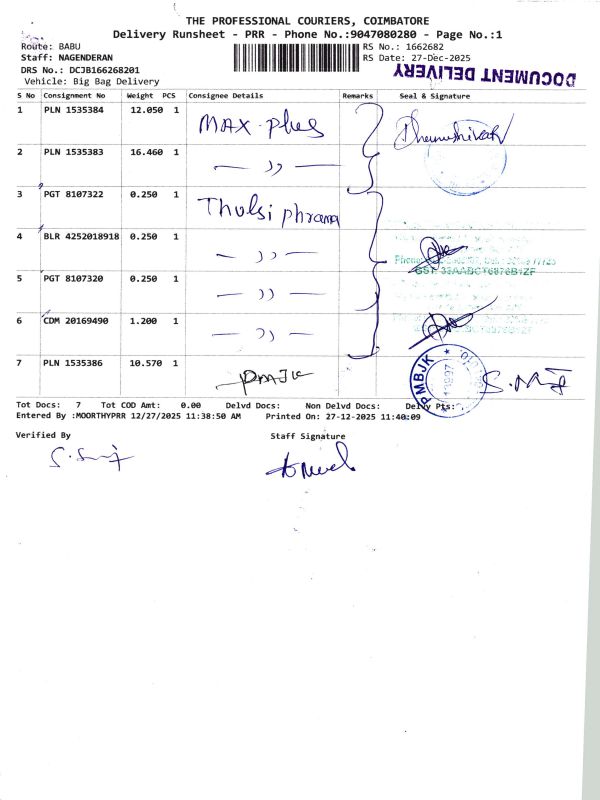 THE PROFESSIONAL COURIERS, COIMBATORE
Delivery Runsheet - PRR - Phone No.:9047080280 - Page No.:1
Route: BABU
RS No.: 1662682
Staff: NAGENDERAN
RS Date: 27-Dec-2025
DRS No.: DCJB166268201
DOCUMENT DELIVERY
Vehicle: Big Bag Delivery
S No Consignment No Weight PCS Consignee Details Remarks Seal & Signature
1 PLN 1535384 12.050 1 MAX plus
2 PLN 1535383 16.460 1 — ,, —
3 PGT 8107322 0.250 1 Thulsi phrama
4 BLR 4252018918 0.250 1 — ,, —
5 PGT 8107320 0.250 1 — ,, —
6 CDM 20169490 1.200 1 — ,, —
7 PLN 1535386 10.570 1 PMJK
PMBJK
Tot Docs: 7 Tot COD Amt: 0.00 Delvd Docs: Non Delvd Docs: Delvy Pts:
Entered By :MOORTHYPRR 12/27/2025 11:38:50 AM Printed On: 27-12-2025 11:40:09
Verified By Staff Signature